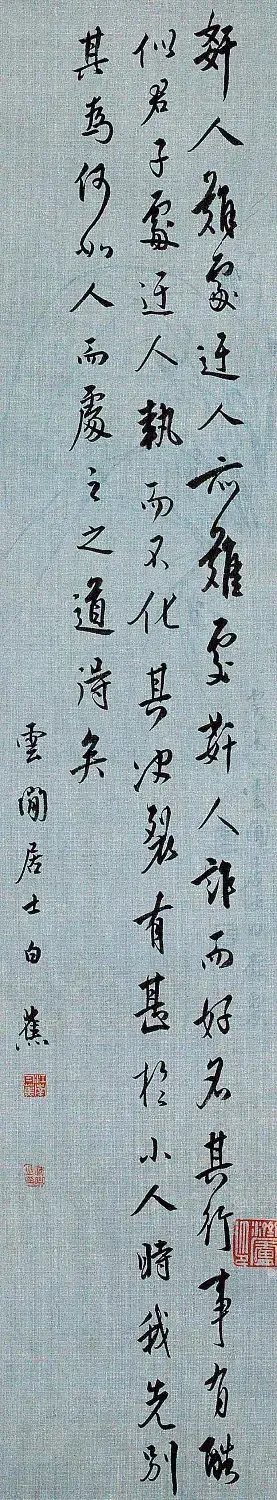 姧人難處迂人亦難處姧人詐而好名其行事有酷
似君子處迂人執而不化其决裂有甚於小人時我先別
其為何如人而處之之道得矣
雲閒居士白蕉